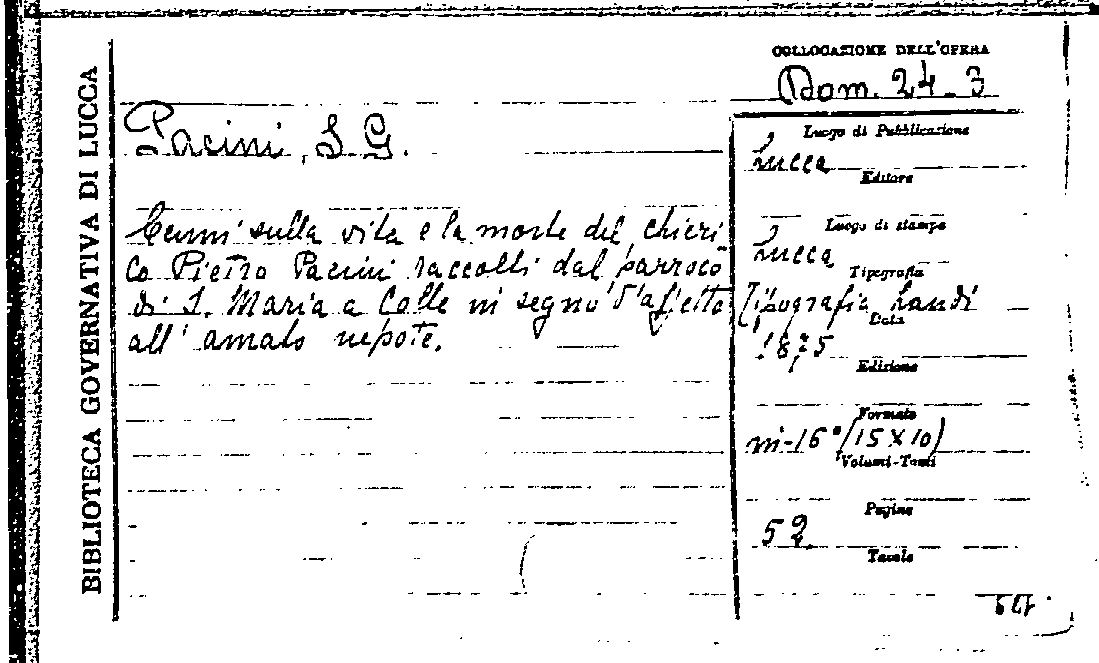 BIBLIOTECA GOVERNATIVA DI LUCCA
COLLOCAZIONE DELL'OPERA
Dom. 24-3
Pacini, S G.
Cenni sulla vita e la morte del chieri-
co Pietro Pacini raccolti dal parroco
di S. Maria a Colle in segno d'affetto
all' amato nepote.
Luogo di Pubblicazione
Lucca
Editore
Luogo di stampa
Lucca
Tipografia
Tipografia Landi
Data
1875
Edizione
Formato
in-16°(15X10)
Volumi-Tomi
Pagine
52
Tavole